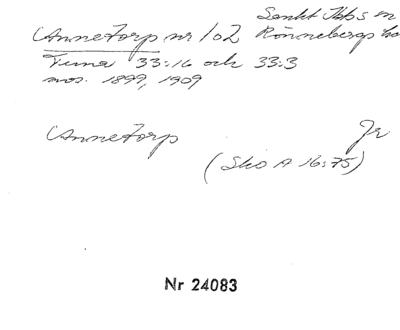 Sankt Ibbs sn
Annetorp nr 1o2 Rönnebergs hd
Tuna 33:16 och 33:3
mos. 1899, 1909
Annetorp Jr
(Sko A 16:75)
Nr 24083